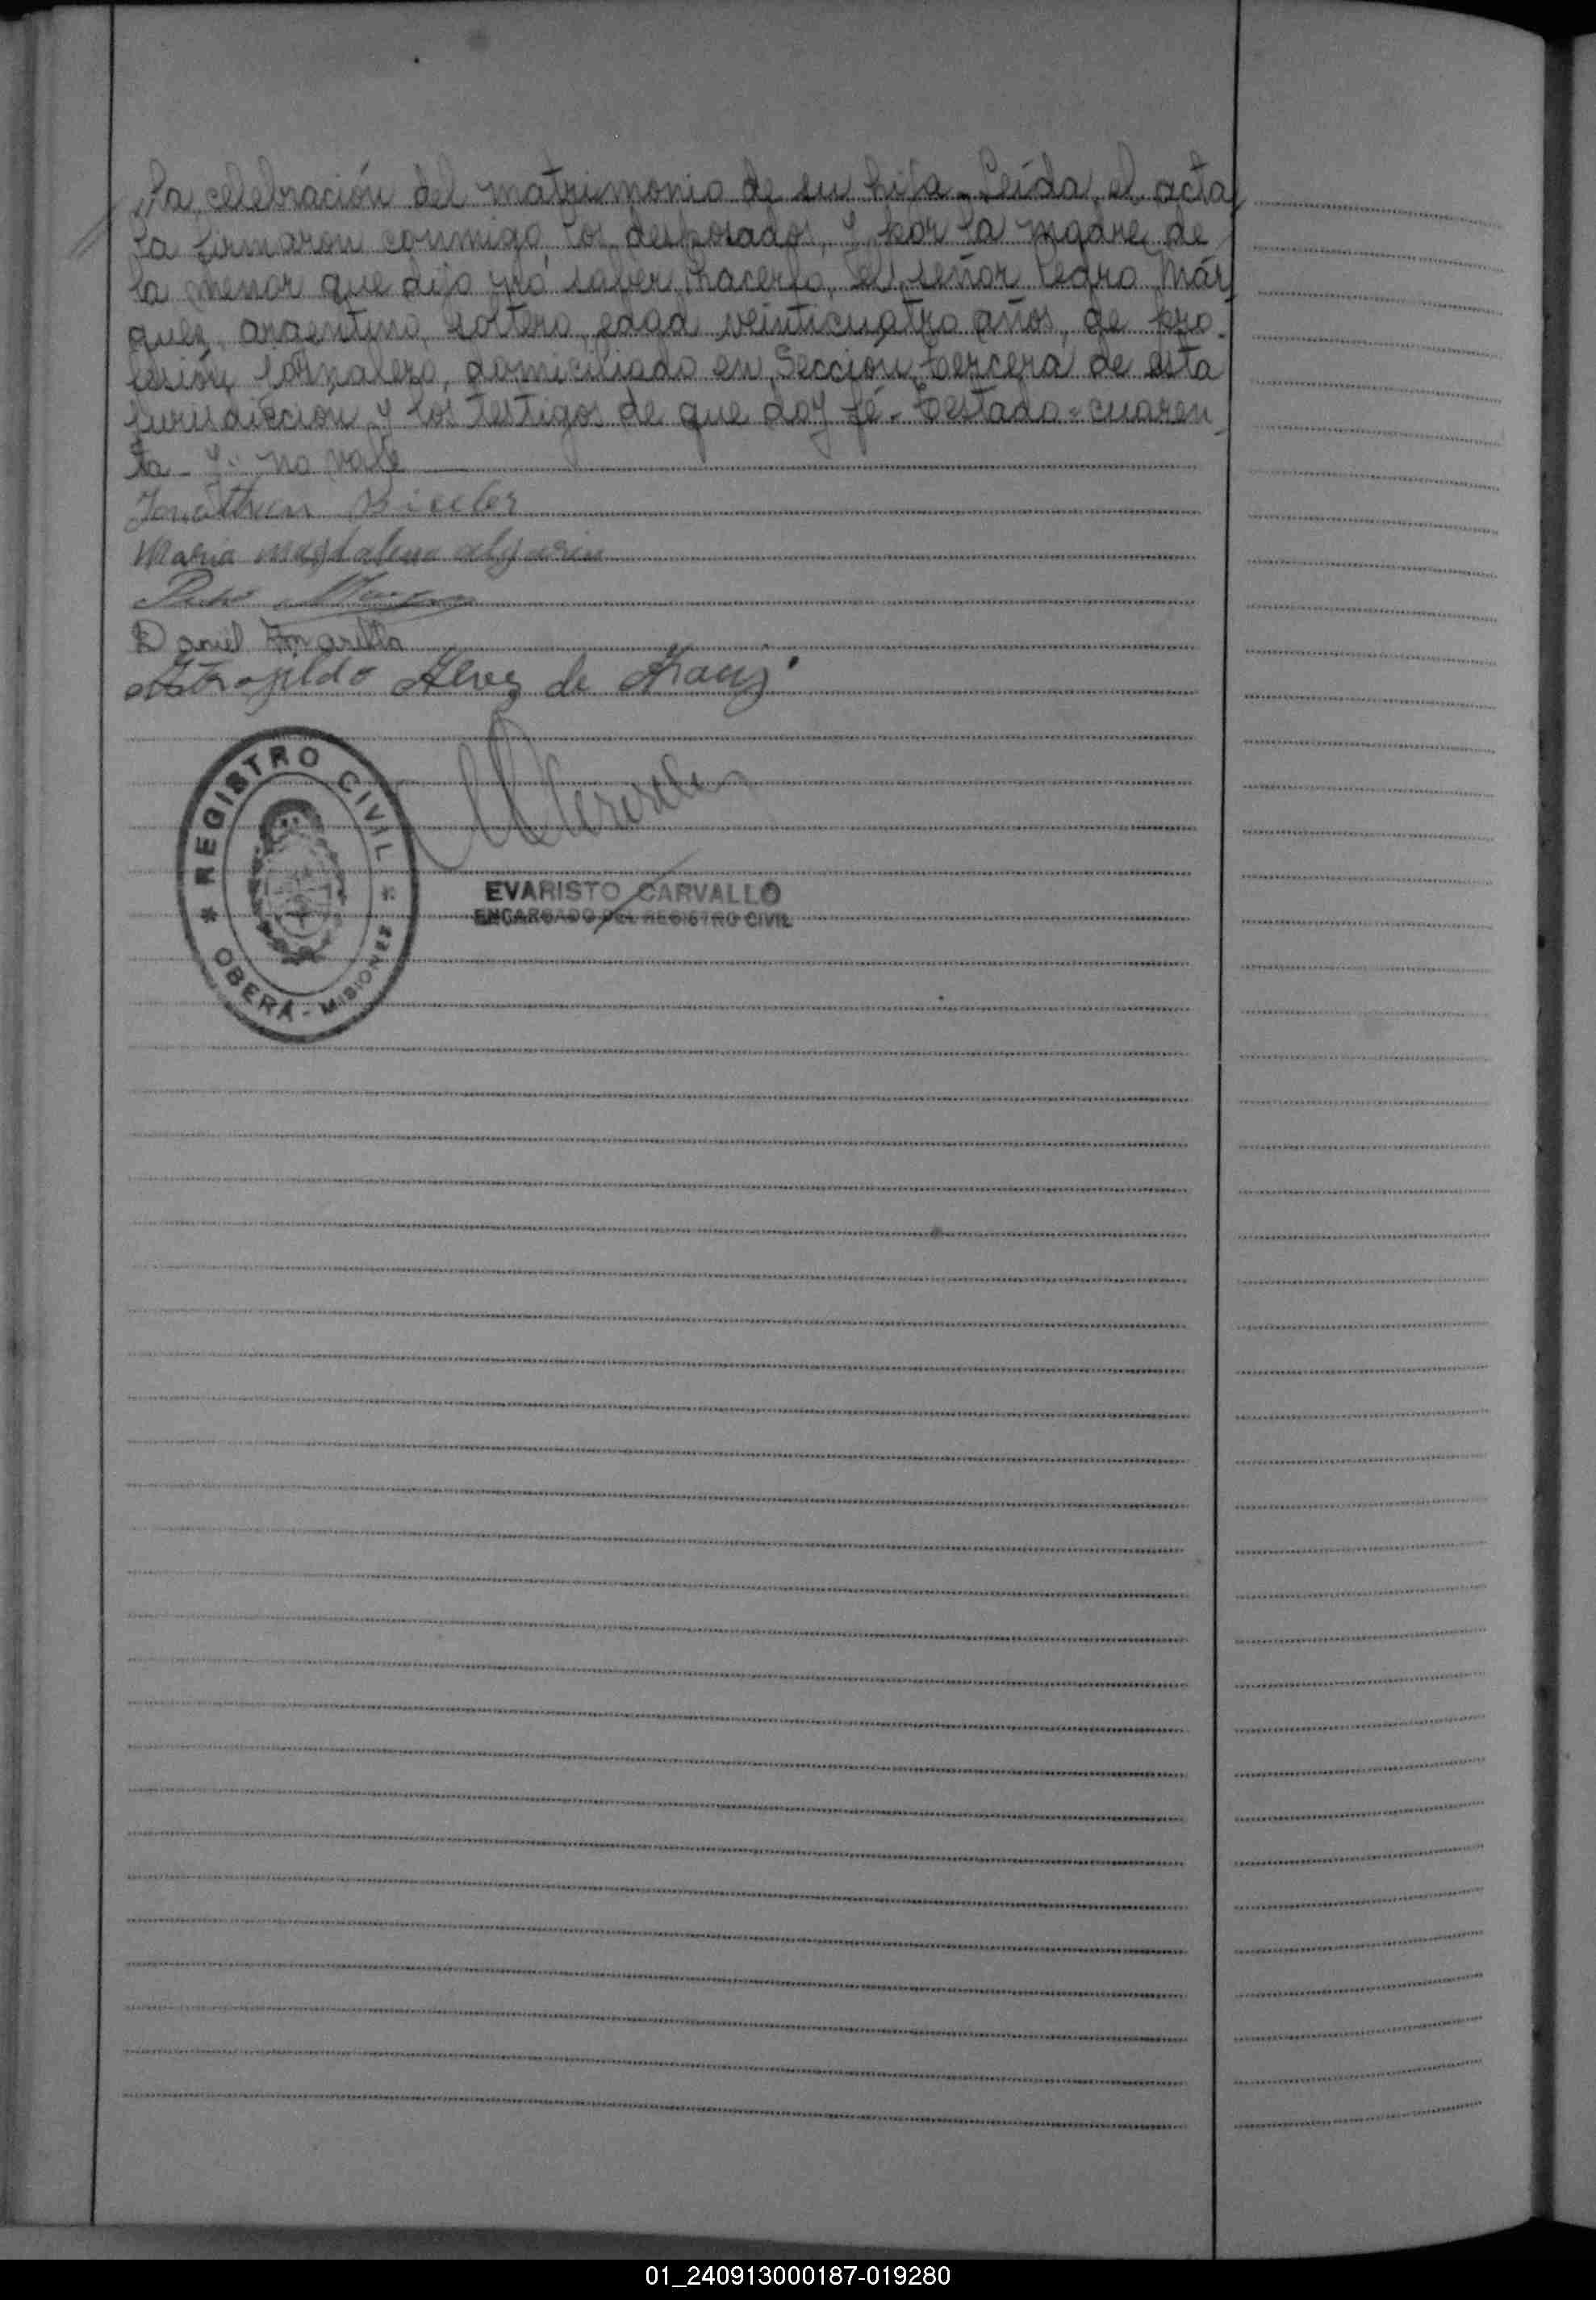 la celebración del matrimonio de su hija. Leída el acta
la firmaron conmigo los desposados, y por la madre de
la menor que dijo nó saber hacerlo, el señor Pedro Már
quez, argentino, soltero, edad veinticuatro años, de pro-
fesión jornalero, domiciliado en Sección tercera de esta
jurisdicción y los testigos de que doy fé - Testado = cuaren_
ta - y - no vale
Jonathan
Maria Magdalena
Pedro
Daniel Amarilla
Alvez de
REGISTRO CIVIL
OBERÁ - MISIONES
EVARISTO CARVALLO
ENCARGADO DEL REGISTRO CIVIL
01_240913000187-019280